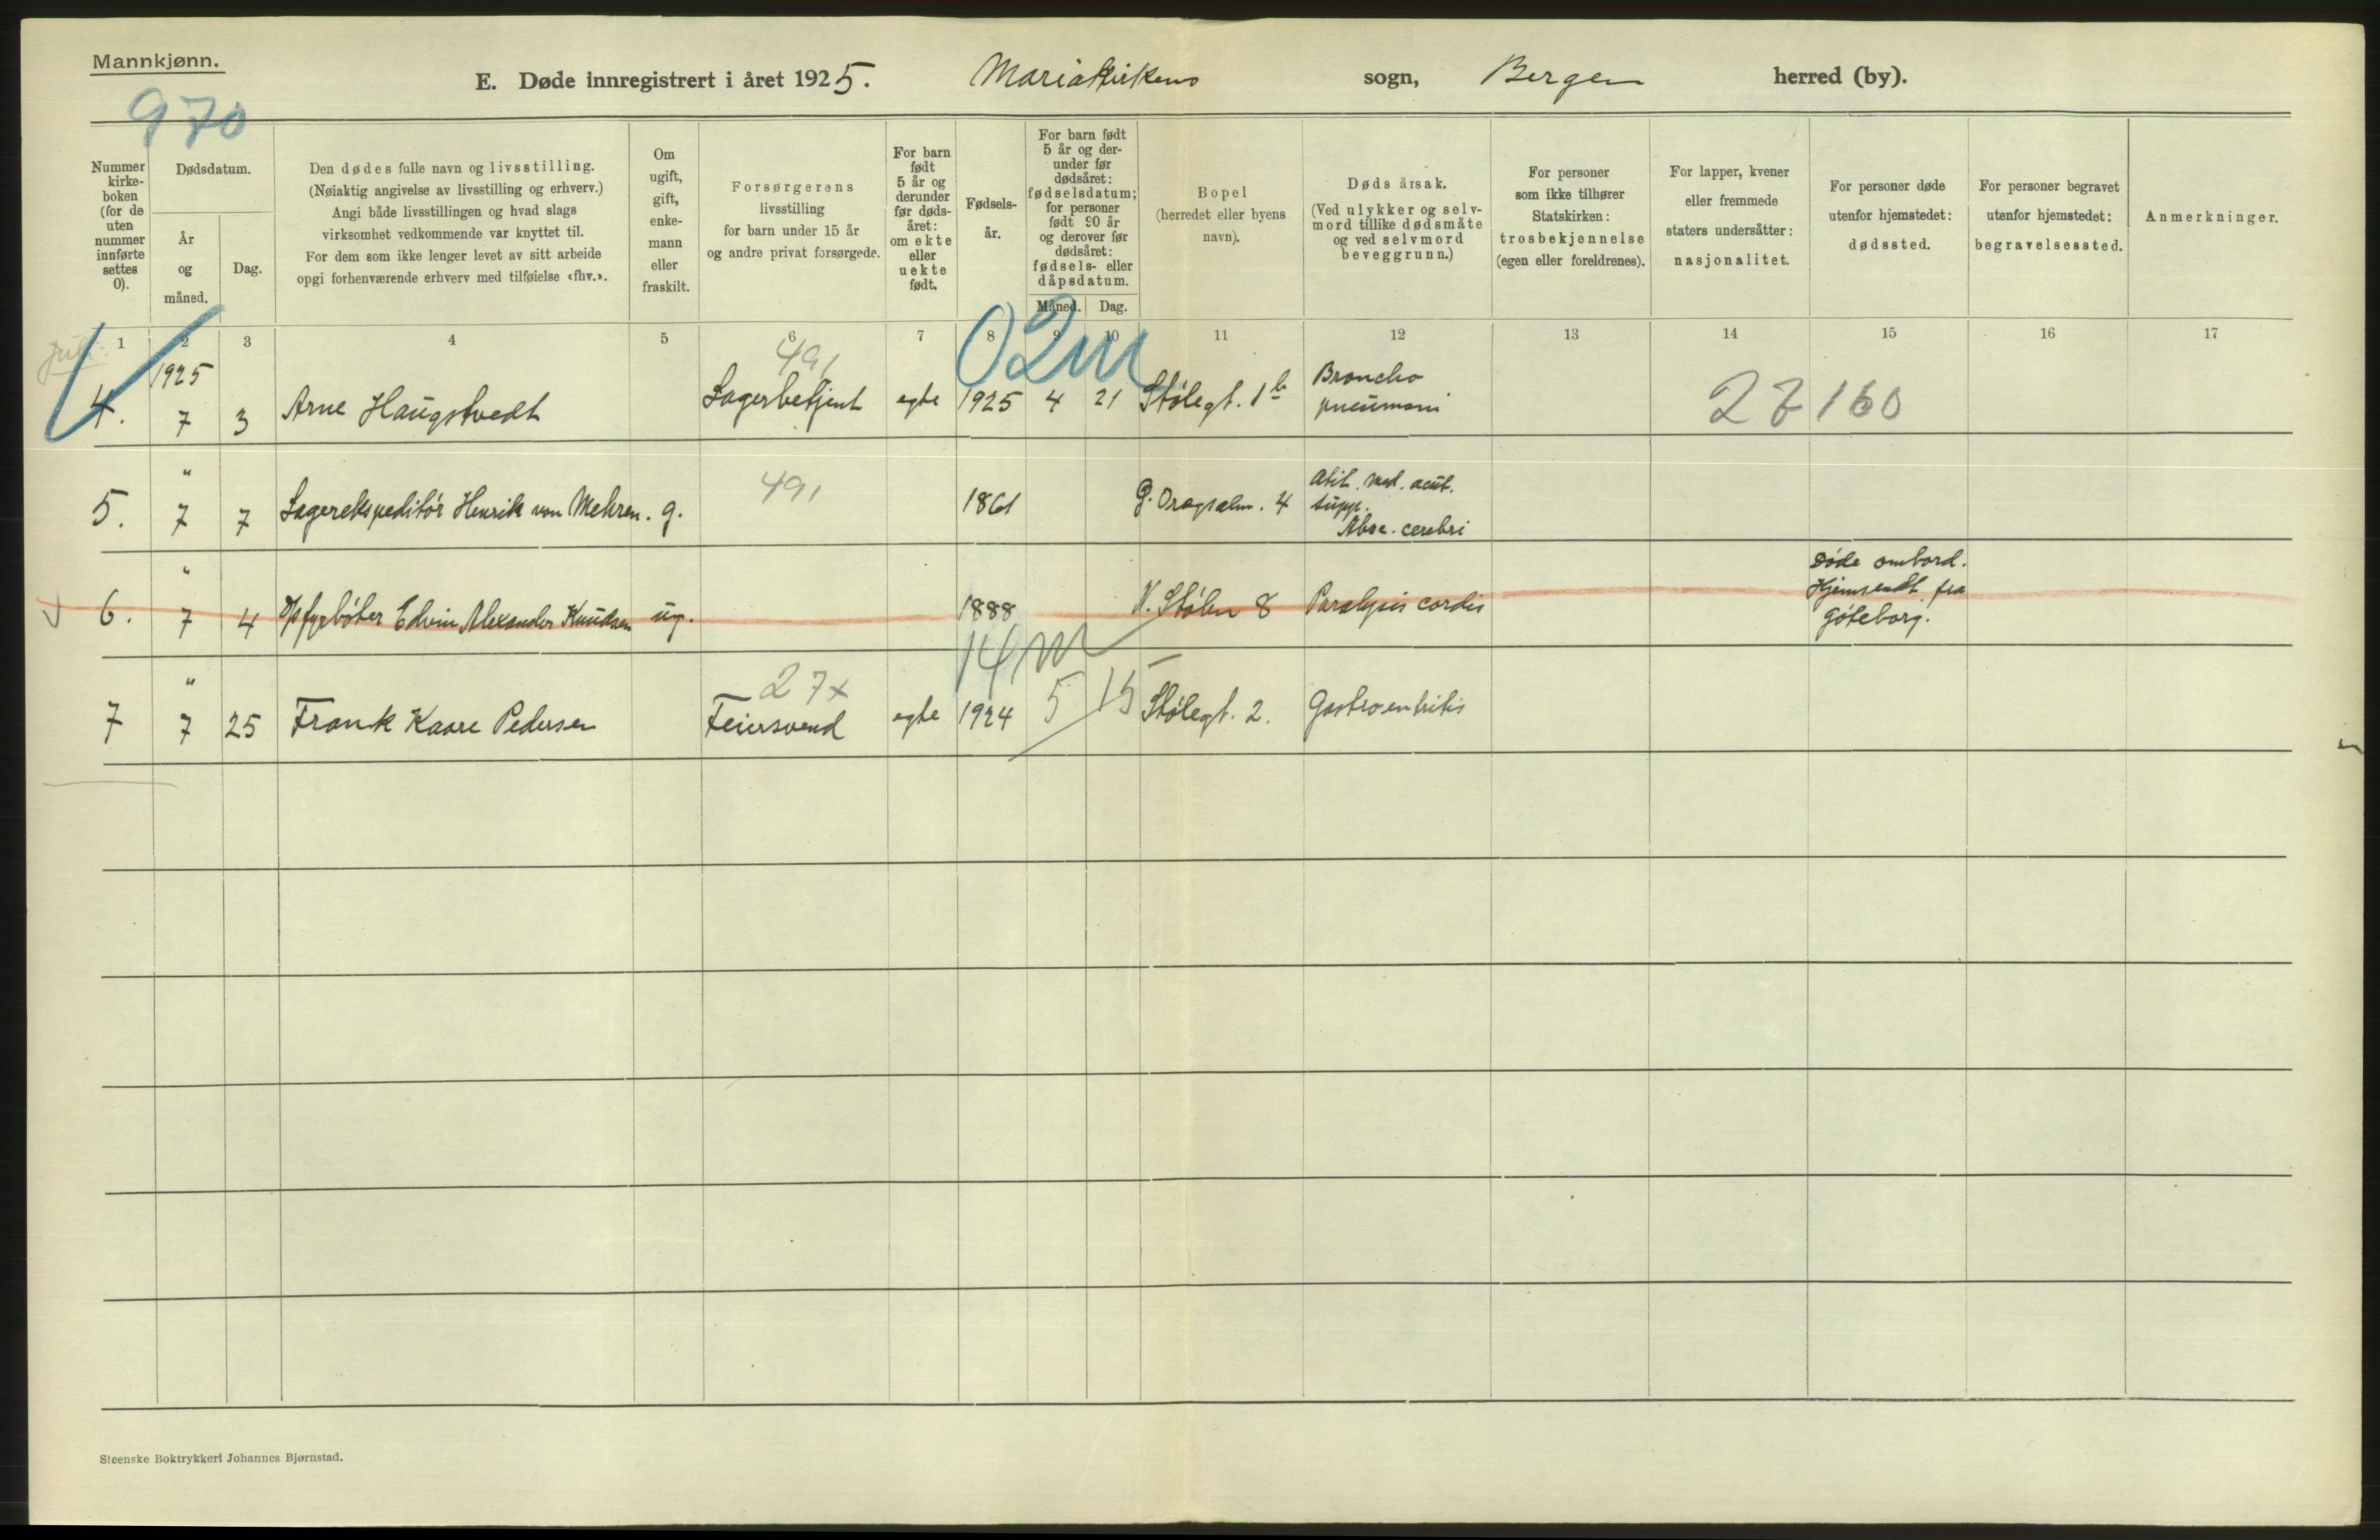 Mannkjønn.
E. Døde innregistrert i året 1925. Mariakirkens sogn, Bergen herred (by).
970
Nummer
kirke-
boken
(for de
uten
nummer
innførte
settes
0).
Dødsdatum.
År
og
måned.
Dag.
Den dødes fulle navn og livsstilling.
(Nøiaktig angivelse av livsstilling og erhverv.)
Angi både livsstillingen og hvad slags
virksomhet vedkommende var knyttet til.
For dem som ikke lenger levet av sitt arbeide
opgi forhenværende erhverv med tilføielse «fhv.».
Om
ugift,
gift,
enke-
mann
eller
fraskilt.
Forsørgerens
livsstilling
for barn under 15 år
og andre privat forsørgede.
For barn
født
5 år og
derunder
før døds-
året:
om ekte
eller
uekte
født.
Fødsels-
år.
For barn født
5 år og der-
under før
dødsåret:
fødselsdatum;
for personer
født 90 år
og derover før
dødsåret:
fødsels- eller
dåpsdatum.
Måned. Dag.
Bopel
(herredet eller byens
navn).
Dødsårsak.
(Ved ulykker og selv-
mord tillike dødsmåte
og ved selvmord
beveggrunn.)
For personer
som ikke tilhører
Statskirken:
trosbekjennelse
(egen eller foreldrenes).
For lapper, kvener
eller fremmede
staters undersåtter:
nasjonalitet.
For personer døde
utenfor hjemstedet:
dødssted.
For personer begravet
utenfor hjemstedet:
begravelsessted.
Anmerkninger.
1 2 3 4 5 6 7 8 9 10 11 12 13 14 15 16 17
juli
1925 491 02m Broncho
4. 7 3 Arne Haugstvedt Lagerbetjent egte 1925 4 21 Stølegt. 1b pneumoni 27160
" 491 Otit. med. acut.
5. 7 7 Lagerekspeditør Henrik von Mehren. g. 1861 Ø. Dregsalm. 4 supp.
Absc. cerebri
" Døde ombord.
Hjemsendt fra
6. 7 4 D/s fyrbøter Edvin Alexander Knudsen ug. 1888 N. Stølen 8 Paralysis cordis
Gøteborg.
14m
" 27x
7 7 25 Frank Kaare Pedersen Feiersvend egte 1924 5 15 Stølegt. 2. Gastroentritis
Steenske Boktrykkeri Johannes Bjørnstad.